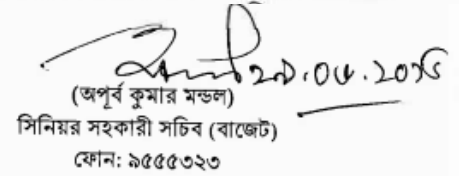 (অপূর্ব কুমার মন্ডল)
সিনিয়র সহকারী সচিব (বাজেট)
ফোন: ৯৫৫৫৩২৩